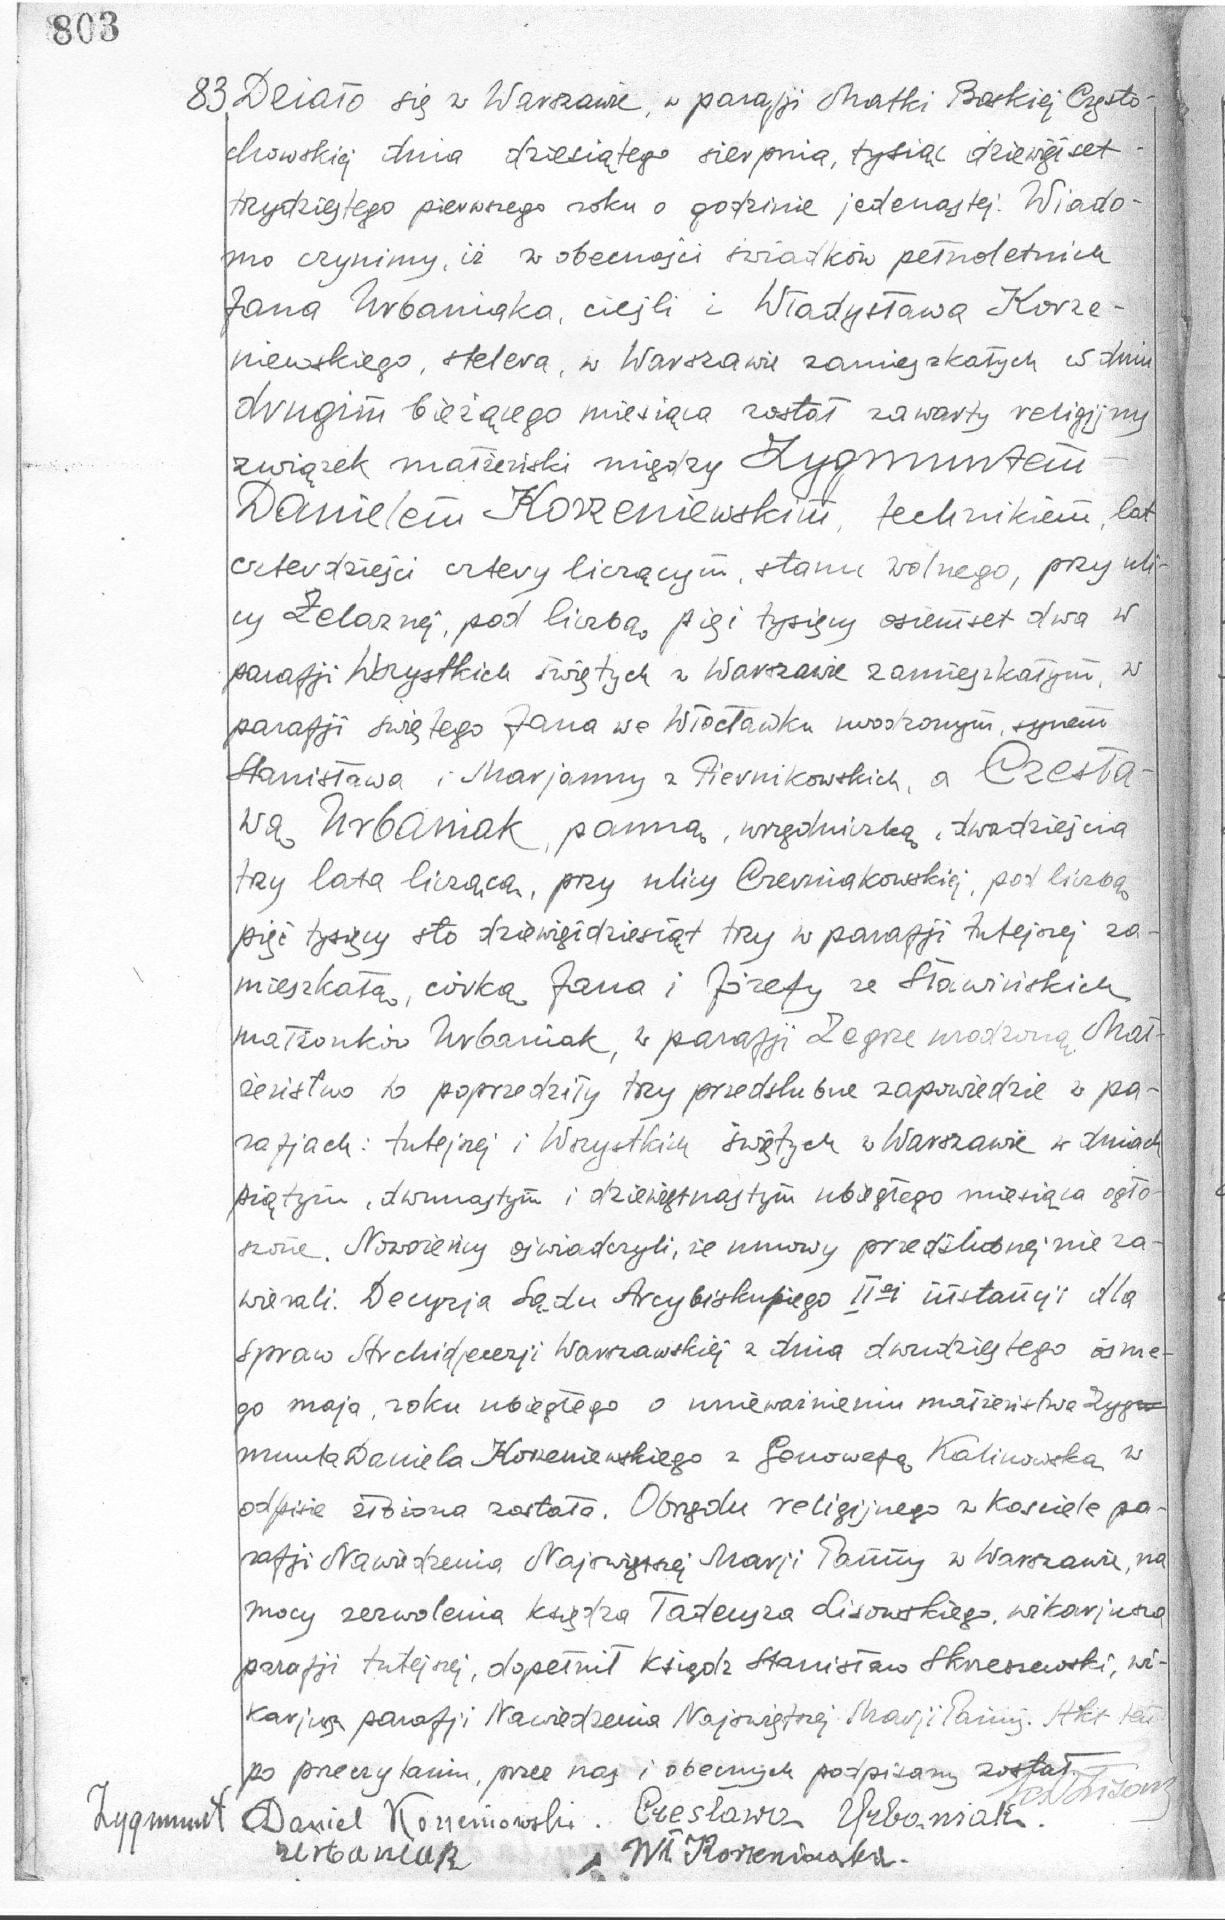 803
83 Działo się w Warszawie, w parafji Matki Boskiej Często-
chowskiej dnia dziesiątego sierpnia, tysiąc dziewięćset -
trzydziestego pierwszego roku o godzinie jedenastej. Wiado-
mo czynimy, iż w obecności świadków pełnoletnich
Jana Urbaniaka, cieśli i Władysława Korze-
niewskiego, stelera, w Warszawie zamieszkałych w dniu
drugim bieżącego miesiąca został zawarty religijny
związek małżeński między Zygmuntem
Danielem Korzeniewskim, technikiem, lat
czterdzieści cztery liczącym, stanu wolnego, przy uli-
cy Żelaznej, pod liczbą pięć tysięcy osiemset dwa w
parafji Wszystkich Świętych w Warszawie zamieszkałym, w
parafji świętego Jana we Włocławku urodzonym, synem
Stanisława i Marjanny z Piernikowskich, a Czesła-
wą Urbaniak, panną, urzędniczką, dwadzieścia
trzy lata liczącą, przy ulicy Czerniakowskiej, pod liczbą
pięć tysięcy sto dziewięćdziesiąt trzy w parafji tutejszej za-
mieszkałą, córką Jana i Józefy ze Sławińskich
małżonków Urbaniak, w parafji Zegrze urodzoną. Mał-
żeństwo to poprzedziły trzy przedślubne zapowiedzie w pa-
rafjach: tutejszej i Wszystkich Świętych w Warszawie w dniach
piątym, dwunastym i dziewiętnastym ubiegłego miesiąca ogło-
szone. Nowożeńcy oświadczyli, że umowy przedślubnej nie za-
wierali. Decyzja Sądu Arcybiskupiego II-ei instancji dla
spraw Archidjecezji Warszawskiej z dnia dwudziestego ósme-
go maja, roku ubiegłego o unieważnieniu małżeństwa Zyg
munta Daniela Korzeniewskiego z Genowefą Kalinowską w
odpisie złożona została. Obrzędu religijnego w kościele pa-
rafji Nawiedzenia Najświętszej Marji Panny w Warszawie, na
mocy zezwolenia księdza Tadeusza Lisowskiego, wikarjusza
parafji tutejszej, dopełnił ksiądz Stanisław Skrzeszewski, wi-
karjusz parafji Nawiedzenia Najświętszej Marji Panny. Akt ten
po przeczytaniu, przez nas i obecnych podpisany został.
Zygmunt Daniel Korzeniowski. Czesława Urbaniak.
Urbaniak Wł Korzeniewski.